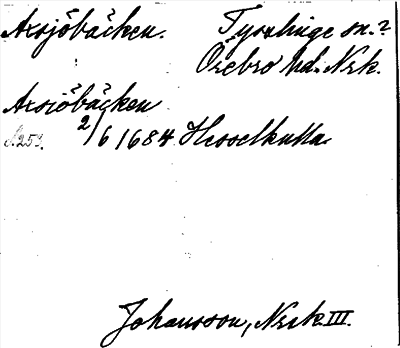 Axsjöbäcken. Tysslinge sn.?
Örebro hd. Nrk.
Axsiöbäcken
S. 253. 2/6 1684 Hesselkulla
Johansson, Nrk III.